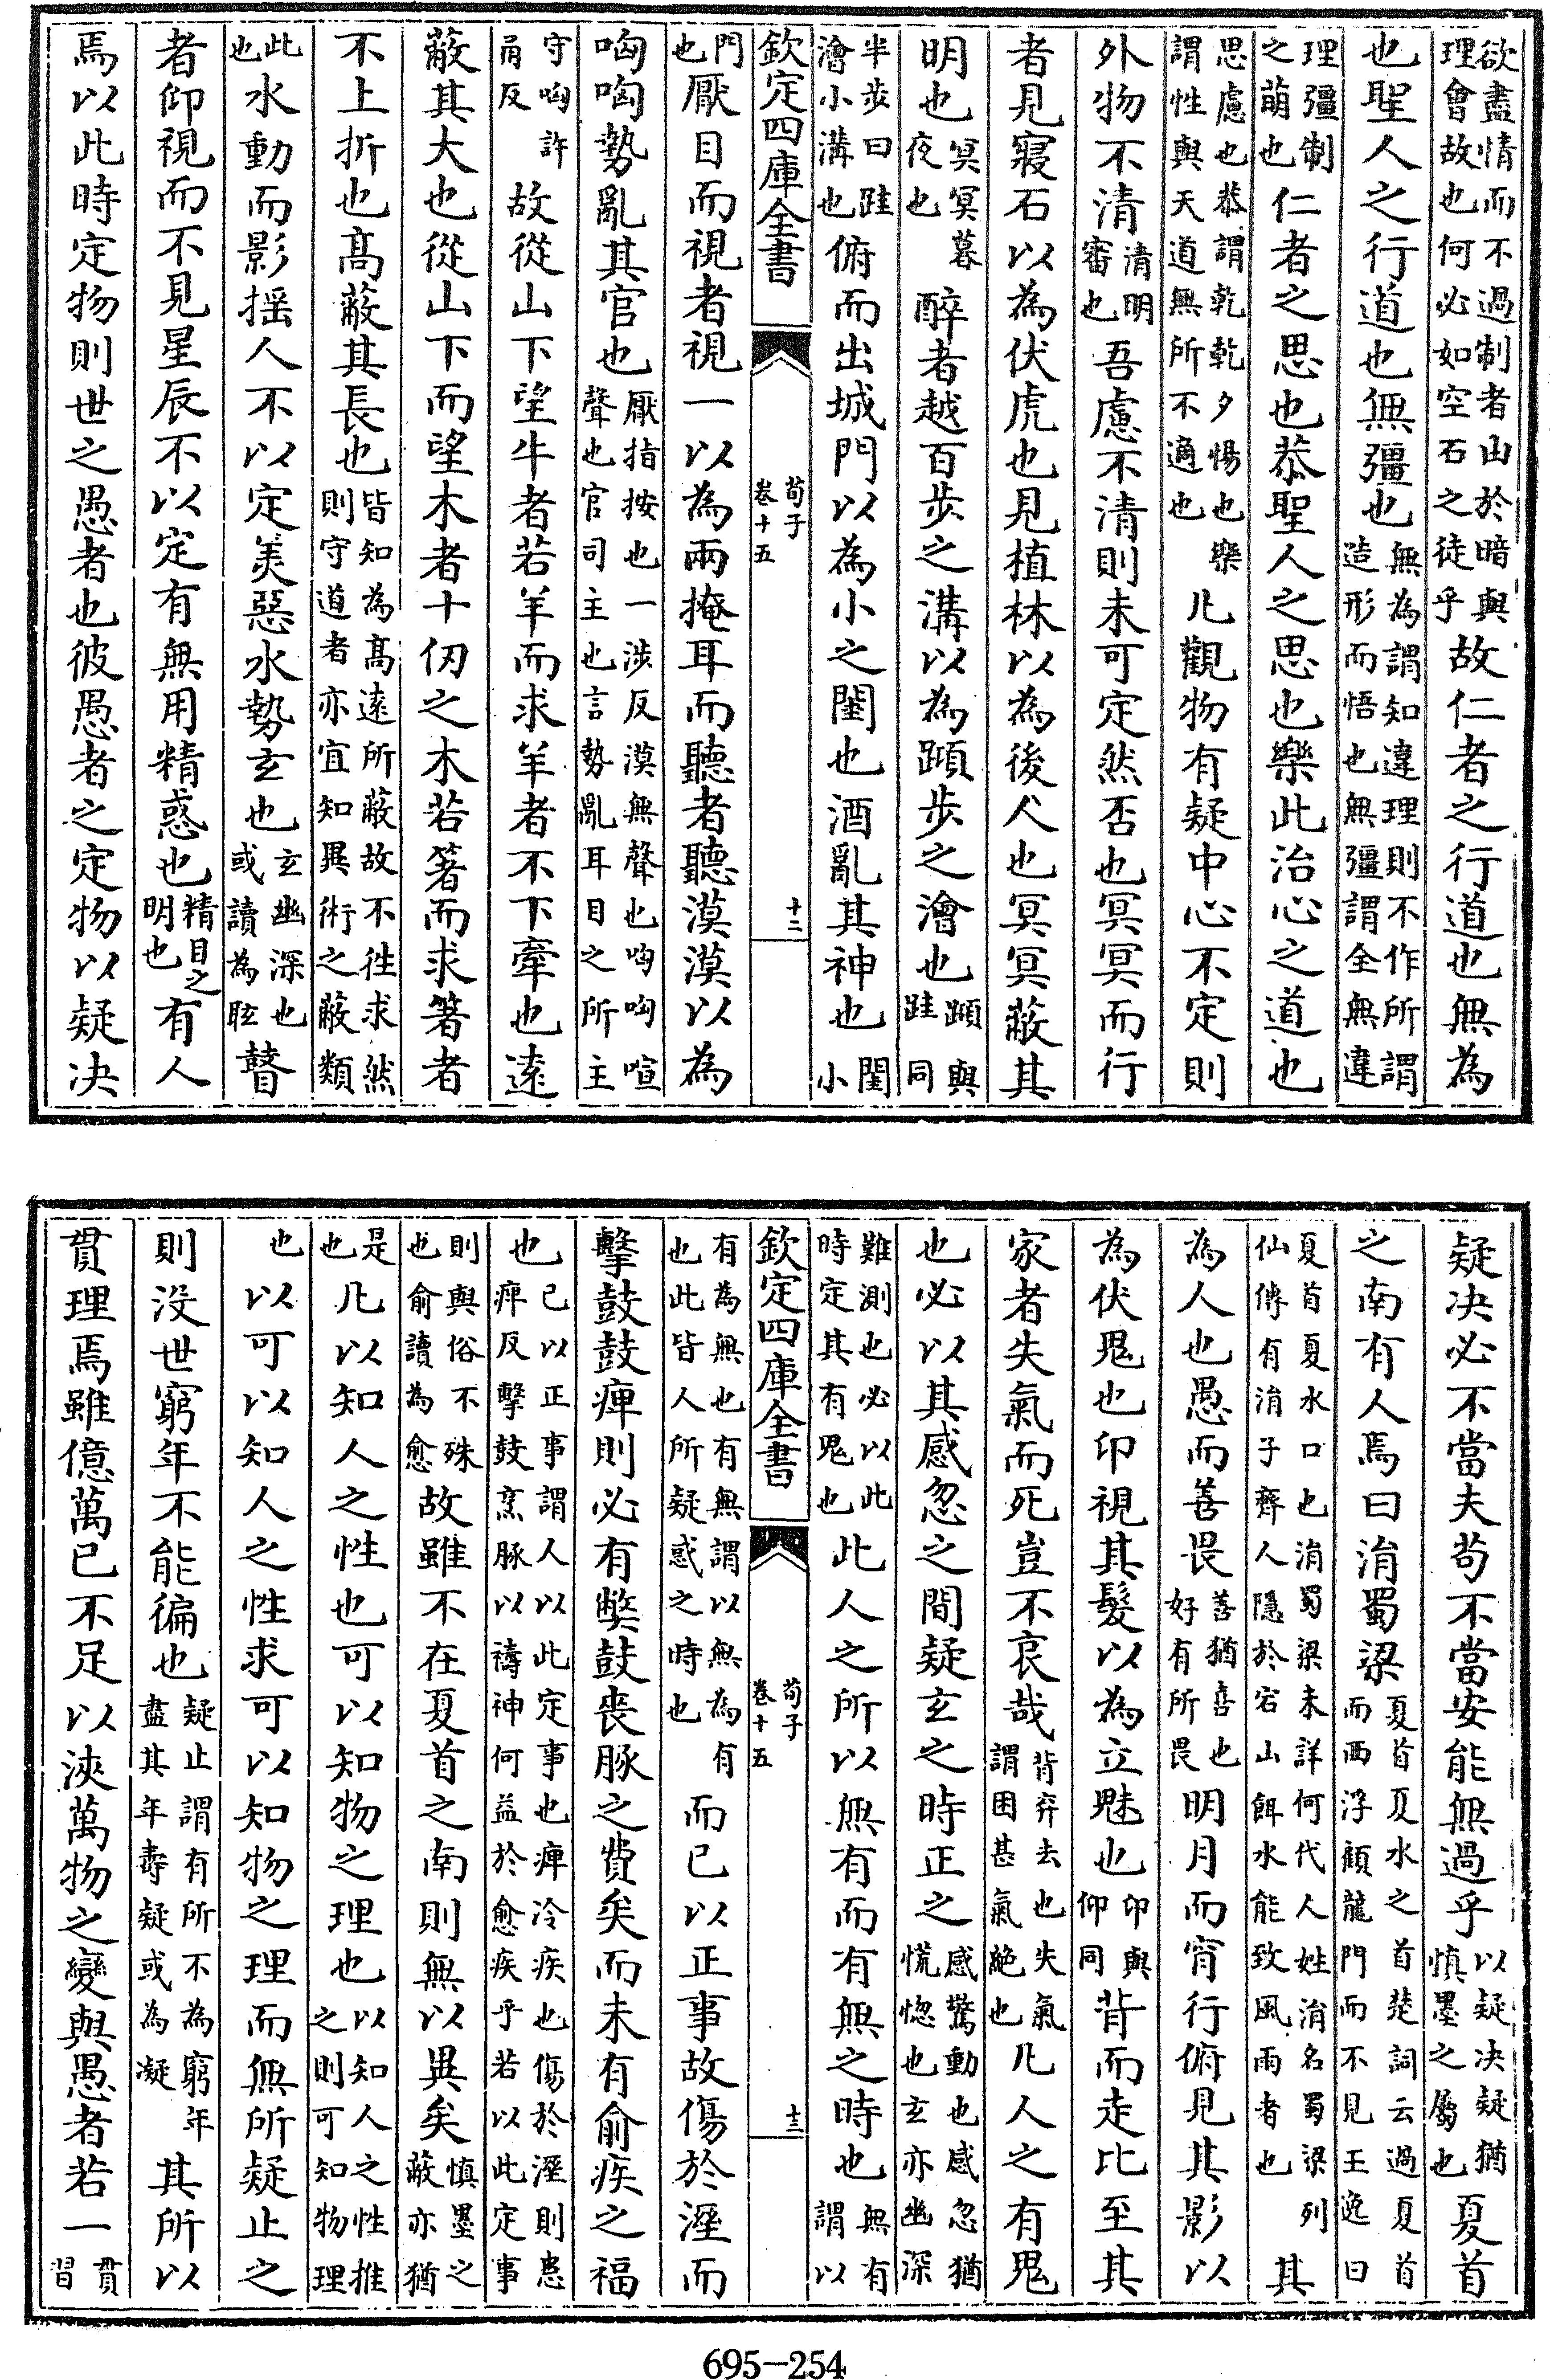 欲盡情而不過制者山於暗與理會故也何必如空石之徒乎故仁者之行道也無為
也聖人之行道也無彊也無為謂知違理則不作所謂造形而悟也無彊謂全無違
理彊制之萌也仁者之思也恭聖人之思也樂此治心之道也
思慮也恭謂乾乾夕惕也樂謂性與天道無所不適也凡觀物有疑中心不定則
外物不清清明審也吾慮不清則未可定然否也冥冥而行
者見寢石以為伏虎也見植林以為後人也冥冥蔽其
明也冥冥暮夜也醉者越百步之溝以為蹞步之澮也蹞與跬同
半步曰跬澮小溝也俯而出城門以為小之閨也酒亂其神也閨小
欽定四庫全書 荀子卷十五 十二
門也厭目而視者視一以為兩掩耳而聽者聽漠漠以為
哅哅勢亂其官也厭指按也一涉反漠無聲也哅哅喧聲也官司主也言勢亂耳目之所主
守哅許甬反故從山下望牛者若羊而求羊者不下牽也遠
蔽其大也從山下而望木者十仞之木若箸而求箸者
不上折也高蔽其長也皆知為高遠所蔽故不往求然則守道者亦宜知異術之蔽類
此也水動而影揺人不以定羙惡水勢玄也玄幽深也或讀為眩瞽
者仰視而不見星辰不以定有無用精惑也精目之明也有人
焉以此時定物則世之愚者也彼愚者之定物以疑決
疑決必不當夫茍不當安能無過乎以疑決疑猶慎墨之屬也夏首
之南有人焉曰涓蜀梁夏首夏水之首楚詞云過夏首而西浮顧龍門而不見王逸曰
夏首夏水口也涓蜀梁未詳何代人姓涓名蜀梁列仙傳有涓子齊人隱於宕山餌水能致風雨者也其
為人也愚而善畏善猶喜也好有所畏明月而宵行俯見其影以
為伏鬼也卬視其髮以為立魅也卬與仰同背而走比至其
家者失氣而死豈不哀哉背弃去也失氣謂困甚氣絶也凡人之有鬼
也必以其感忽之間疑玄之時正之感驚動也感忽猶慌惚也玄亦幽深
難測也必以此時定其有鬼也此人之所以無有而有無之時也無有謂以
欽定四庫全書 荀子卷十五 十三
有為無也有無謂以無為有也此皆人所疑惑之時也而已以正事故傷於溼而
擊鼓鼓痺則必有弊鼓喪豚之費矣而未有俞疾之福
也已以正事謂人以此定事也痺冷疾也傷於溼則患痺反擊鼓烹豚以禱神何益於愈疾乎若以此定事
則與俗不殊也俞讀為愈故雖不在夏首之南則無以異矣慎墨之蔽亦猶
是也凡以知人之性也可以知物之理也以知人之性推之則可知物理
也以可以知人之性求可以知物之理而無所疑止之
則没世窮年不能徧也疑止謂有所不為窮年盡其年夀疑或為凝其所以
貫理焉雖億萬已不足以浹萬物之變與愚者若一貫習
695-254